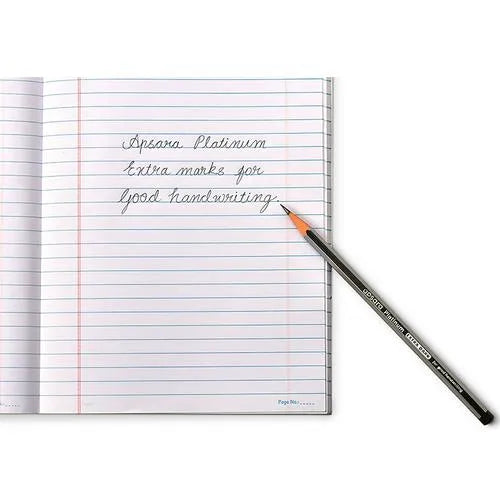 Apsara Platinum
Extra marks for
Good handwriting.
apsara Platinum EXTRA DARK
Page No.: